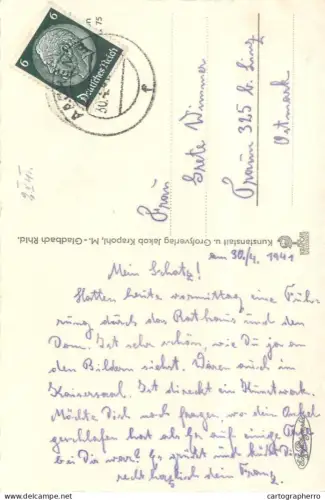 6
6
Deutsches Reich
Frau
Grete Wimmer
Traun 325 b. Linz
Ostmark
Kunstanstalt u. Großverlag Jakob Krapohl, M.-Gladbach Rhld.
am 30./4. 1941
Mein Schatz!
Hatten heute vormittag eine Füh-
rung durch das Rathaus und den
Dom. Ist sehr schön, wie Du ja an
den Bildern siehst. Waren auch im
Kaisersaal. Ist direkt ein Kunstwerk.
Möchte Dich noch fragen, wo den
geschlafen hat als Er auf einige Tage
bei Dir war? Es grüßt und küßt Dich
recht herzlich dein Franz.
www.delcampe.net
cartographerro